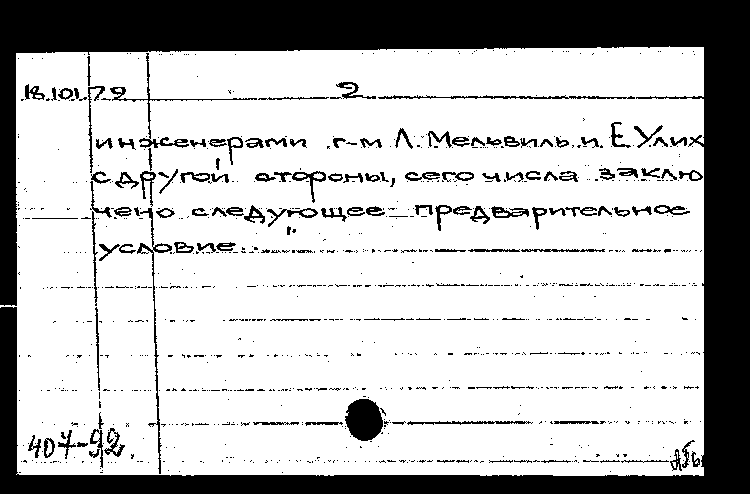 18.101.79 2
инженерами г-м Л. Мельвиль и Е. Улих
с другой стороны, сего числа заклю
чено следующее предварительное
условие..."
407-92.